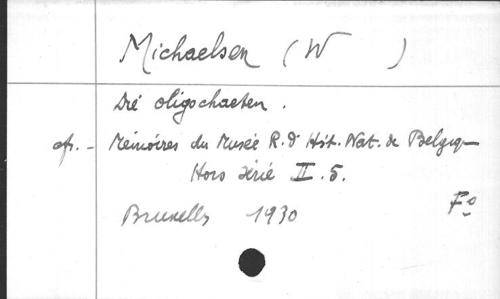 Michaelsen (W )
Die oligochaeten.
cfr. - Mémoires du Musée R. d' Hist. Nat. de Belgique
Hors série II. 5.
Bruxelles 1930 Fo